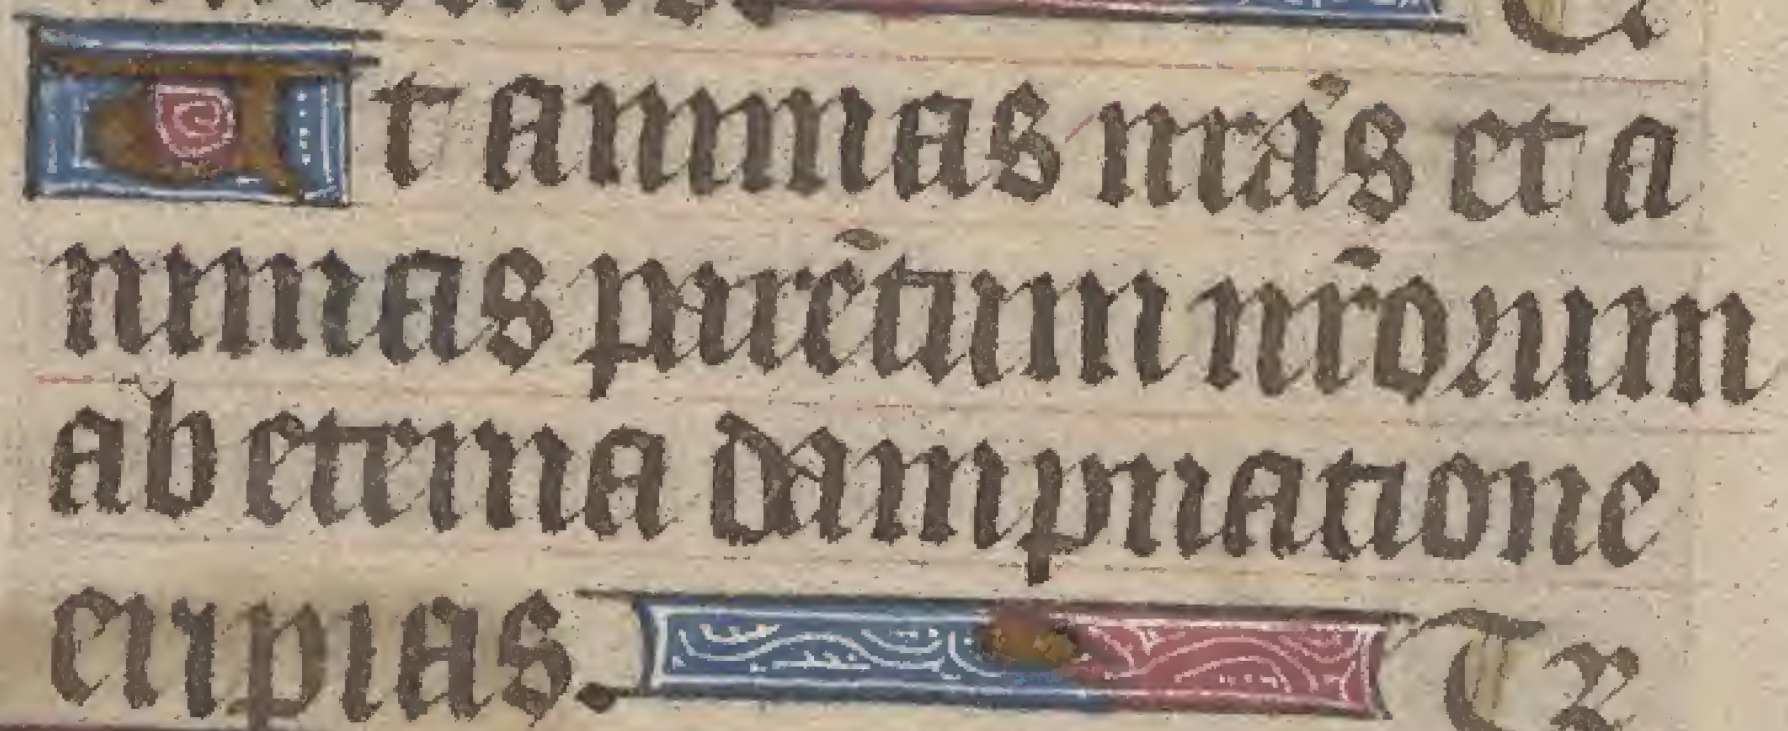 Ut animas nr̄as et a
nimas parētum nr̄orum
ab eterna dampnatione
eripias. Te R